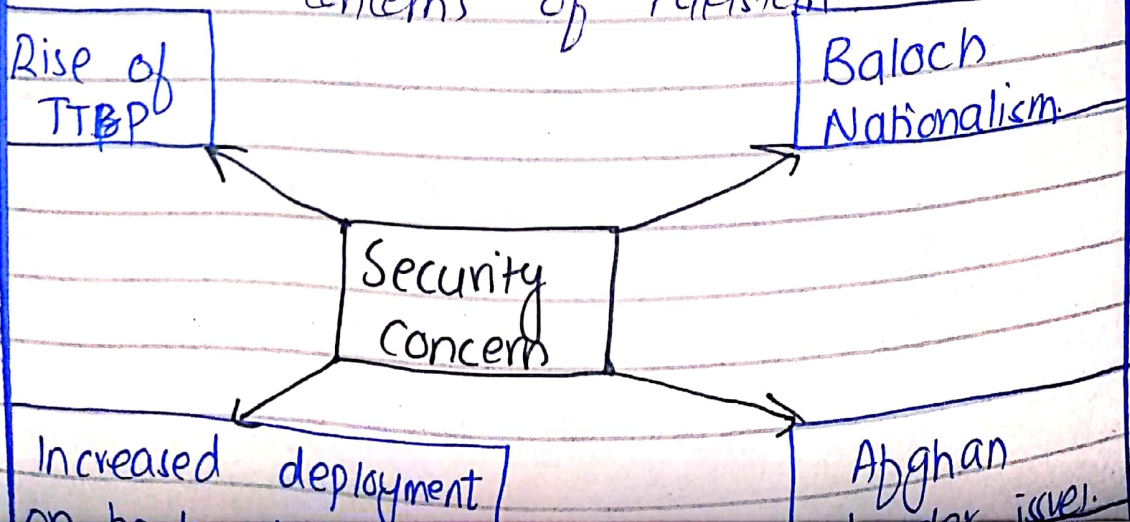 of
Rise of
TTP
Baloch
Nationalism.
Security
Concern
Increased deployment
on
Afghan
issues.